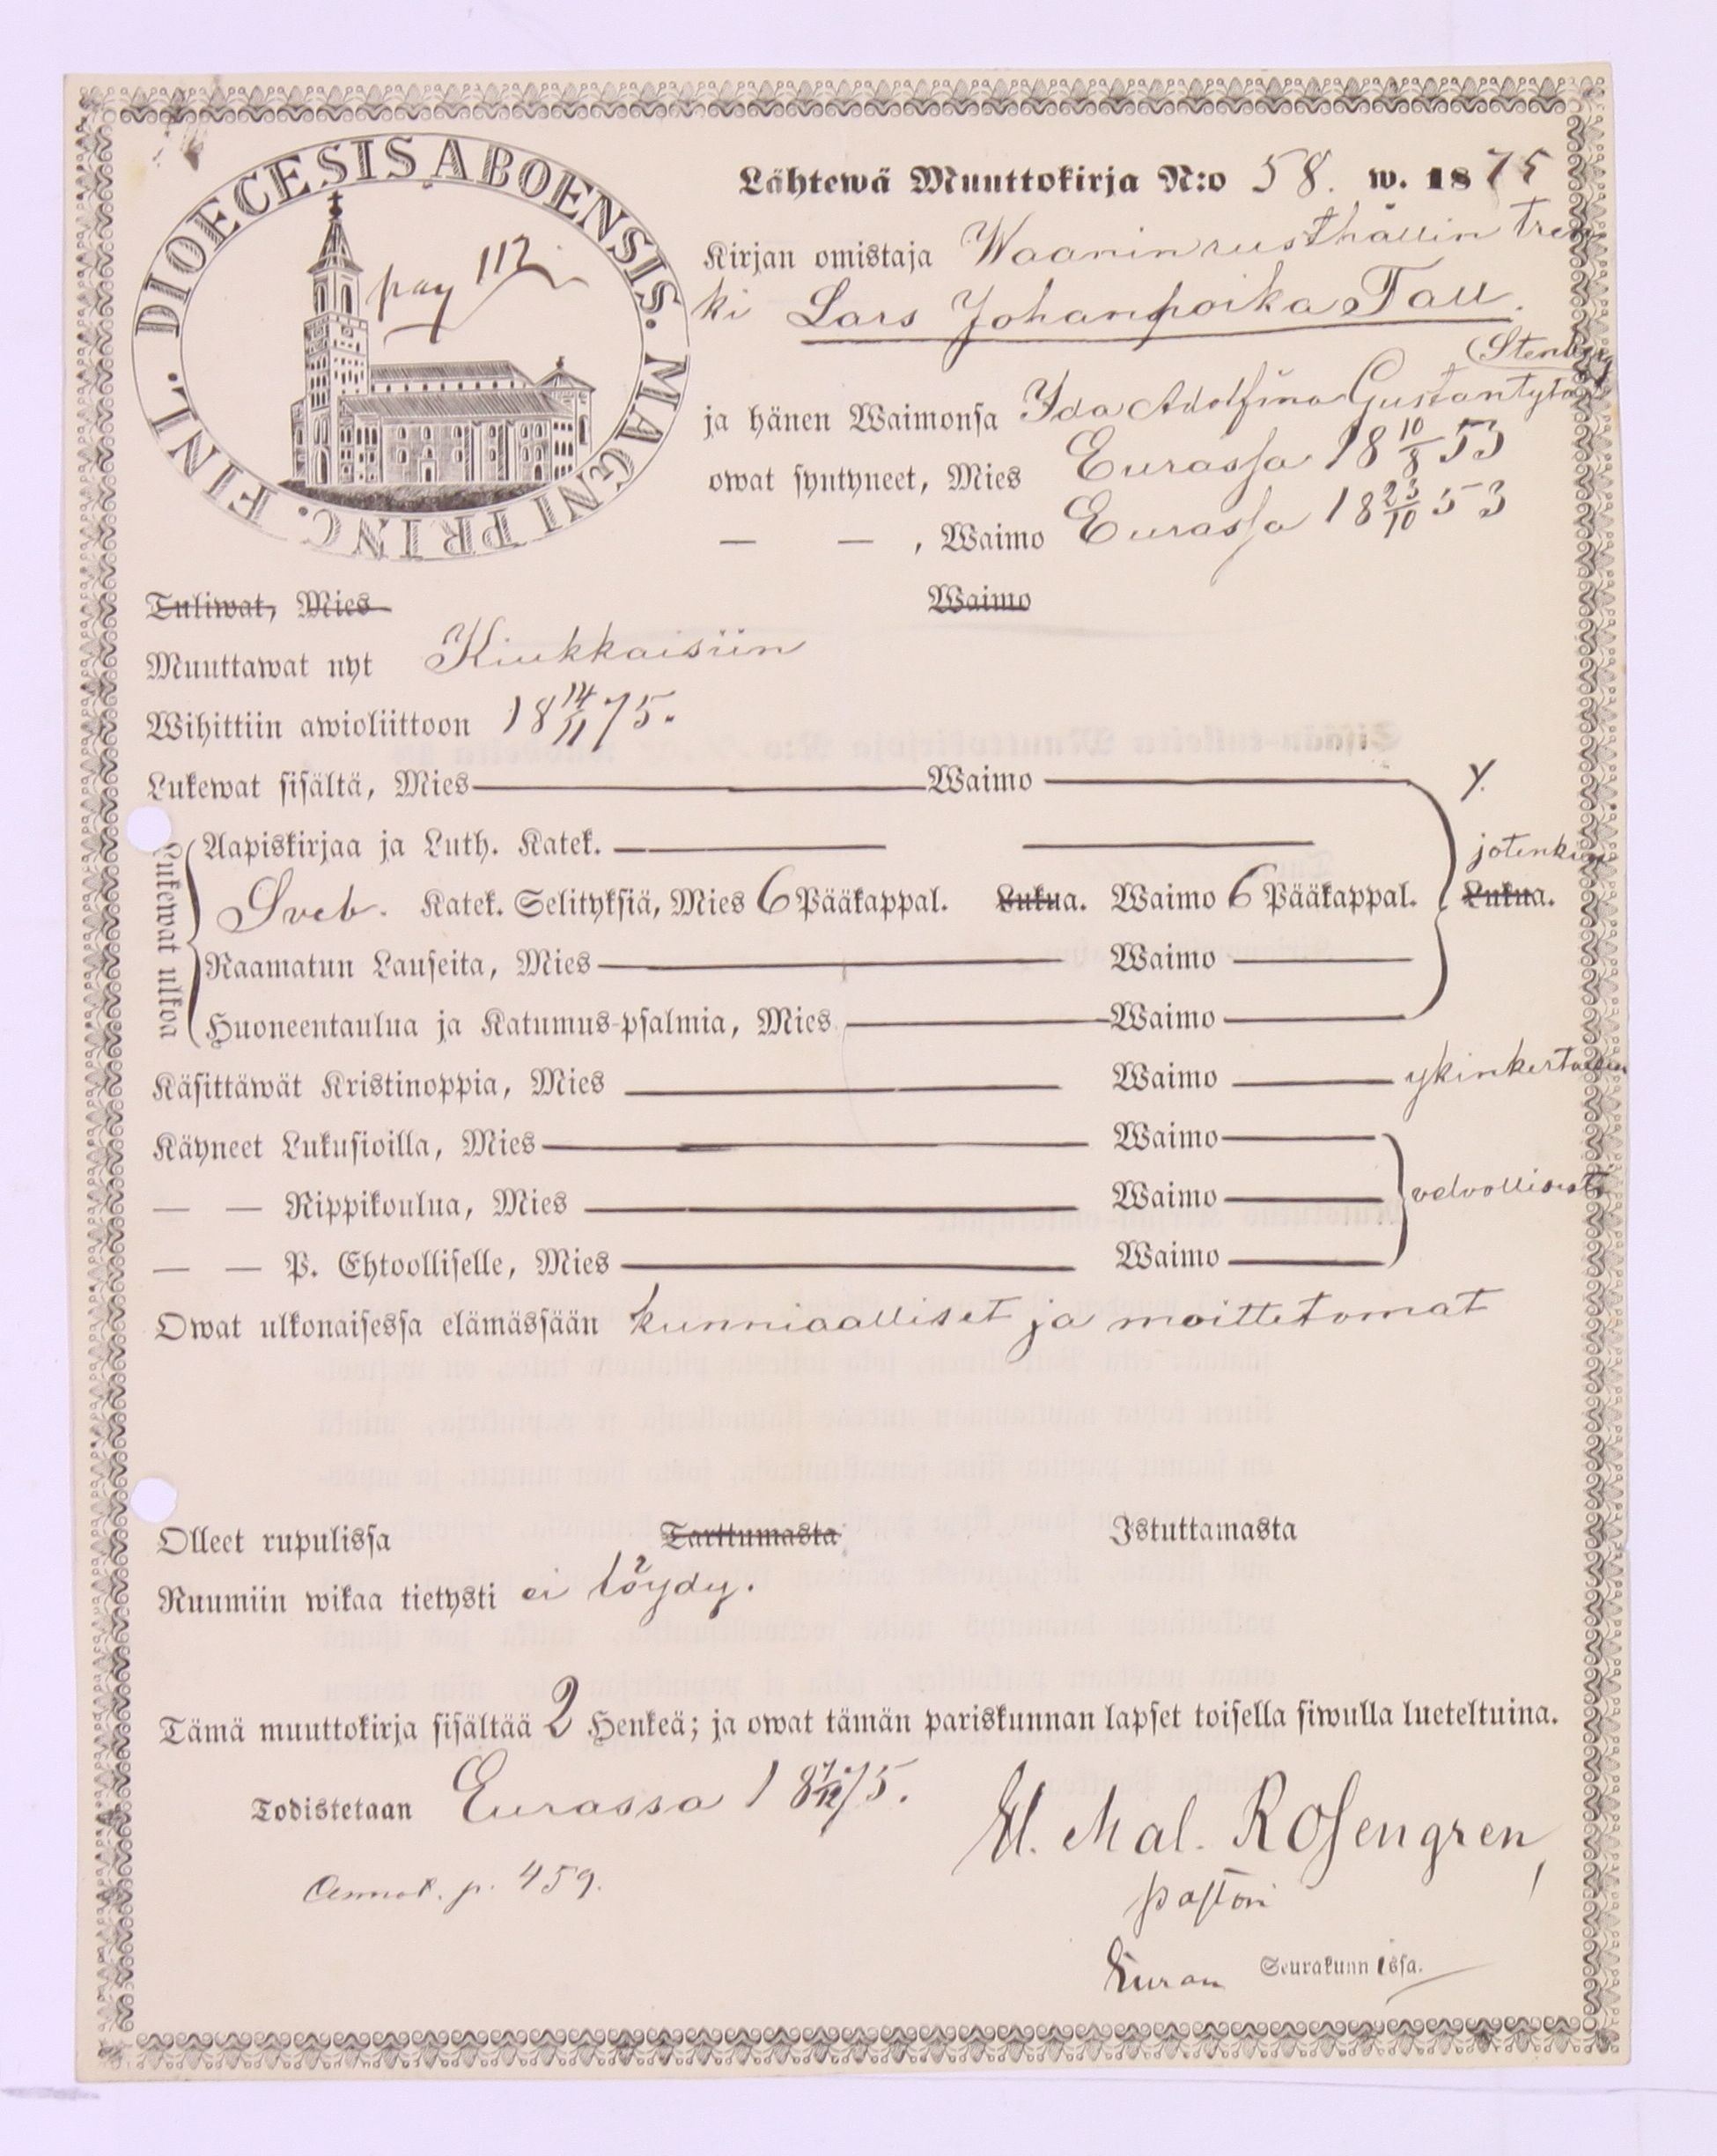 DIOECESIS ABOENSIS. MAGNI PRINC. FINL.
pag 112
Lähtewä Muuttokirja N:o 58. w. 1875
Kirjan omistaja Waanin rusthållin tren
ki Lars Johanpoika Tall.
(Stenberg
ja hänen Waimonsa Ida Adolfina Gustantytär
owat syntyneet, Mies Eurassa 18 10/8 53
— — , Waimo Eurassa 18 23/10 53
Tuliwat, Mies Waimo
Muuttawat nyt Kiukkaisiin
Wihittiin awioliittoon 18 14/11 75.
Lukewat sisältä, Mies Waimo y.
Lukewat ulkoa
Aapiskirjaa ja Luth. Katek. jotenkin
Sveb. Katek. Selityksiä, Mies 6 Pääkappal. Lukua. Waimo 6 Pääkappal. Lukua.
Raamatun Lauseita, Mies Waimo
Huoneentaulua ja Katumus-psalmia, Mies Waimo
Käsittäwät Kristinoppia, Mies Waimo
Käyneet Lukusioilla, Mies Waimo
— — Rippikoulua, Mies Waimo
— — P. Ehtoolliselle, Mies Waimo
Owat ulkonaisessa elämässään kunniaalliset ja moittetomat
Olleet rupulissa Tarttumasta Istuttamasta
Ruumiin wikaa tietysti ei löydy.
Tämä muuttokirja sisältää 2 Henkeä; ja owat tämän pariskunnan lapset toisella siwulla lueteltuina.
Todistetaan Eurassa 18 7/12 75.
Mal. Rosengren,
Annot. p. 459.
pastori
Euran Seurakunnissa.